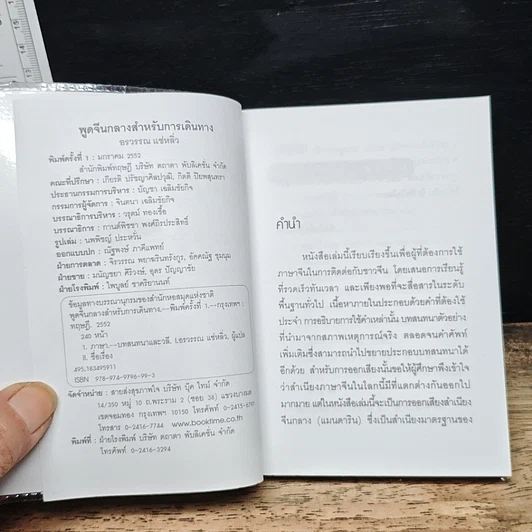 พูดจีนกลางสำหรับการเดินทาง
อรวรรณ แซ่หลิ่ว
พิมพ์ครั้งที่ 1 : มกราคม 2552
สำนักพิมพ์ทฤษฎี บริษัท ตถาตา พับลิเคชั่น จำกัด
คณะที่ปรึกษา : เกียรติ ปรัชญาศิลปวุฒิ, กิตติ ปิยพสุนทรา
ประธานกรรมการบริหาร : บัญชา เฉลิมชัยกิจ
กรรมการผู้จัดการ : จินตนา เฉลิมชัยกิจ
บรรณาธิการบริหาร : วรุตม์ ทองเชื้อ
บรรณาธิการ : กานต์พิชชา พงศ์ถิรประสิทธิ์
รูปเล่ม : นพพิชญ์ ประหวั่น
ออกแบบปก : ณัฐพงษ์ ภาคีแพทย์
ฝ่ายการตลาด : จีรวรรณ พยาบรินทรังกูร, อัคคณัฐ ชุมนุม
ฝ่ายขาย : มนัญชยา ศิริวงษ์, อุดร ปัญญาชัย
ฝ่ายโรงพิมพ์ : ไพบูลย์ ชาตรียานนท์
ข้อมูลทางบรรณานุกรมของสำนักหอสมุดแห่งชาติ
พูดจีนกลางสำหรับการเดินทาง.--พิมพ์ครั้งที่ 1.--กรุงเทพฯ :
ทฤษฎี. 2552
240 หน้า
1. ภาษา.--บทสนทนาและวลี. I.อรวรรณ แซ่หลิ่ว, ผู้แปล
II. ชื่อเรื่อง
495.183495911
ISBN 978-974-9796-99-3
จัดจำหน่าย : สายส่งสุขภาพใจ บริษัท บุ๊ค ไทม์ จำกัด
14/350 หมู่ 10 ถ.พระราม 2 (ซอย 38) แขวงบางมด
เขตจอมทอง กรุงเทพฯ 10150 โทรศัพท์ 0-2415-6797
โทรสาร 0-2416-7744 www.booktime.co.th
พิมพ์ที่ : ฝ่ายโรงพิมพ์ บริษัท ตถาตา พับลิเคชั่น จำกัด
โทรศัพท์ 0-2416-3294
คำนำ
หนังสือเล่มนี้เรียบเรียงขึ้นเพื่อผู้ที่ต้องการใช้
ภาษาจีนในการติดต่อกับชาวจีน โดยเสนอการเรียนรู้
ที่รวดเร็วทันเวลา และเพียงพอที่จะสื่อสารในระดับ
พื้นฐานทั่วไป เนื้อหาภายในประกอบด้วยคำที่ต้องใช้
ประจำ การอธิบายการใช้คำเหล่านั้น บทสนทนาตัวอย่าง
ที่นำมาจากสภาพเหตุการณ์จริง ตลอดจนคำศัพท์
เพิ่มเติมซึ่งสามารถนำไปขยายประกอบบทสนทนาได้
อีกด้วย สำหรับการออกเสียงนั้นขอให้ผู้ศึกษาพึงเข้าใจ
ว่าสำเนียงภาษาจีนในโลกนี้มีที่แตกต่างกันออกไป
มากมาย แต่ในหนังสือเล่มนี้จะเป็นการออกเสียงสำเนียง
จีนกลาง (แมนดาริน) ซึ่งเป็นสำเนียงมาตรฐานของ